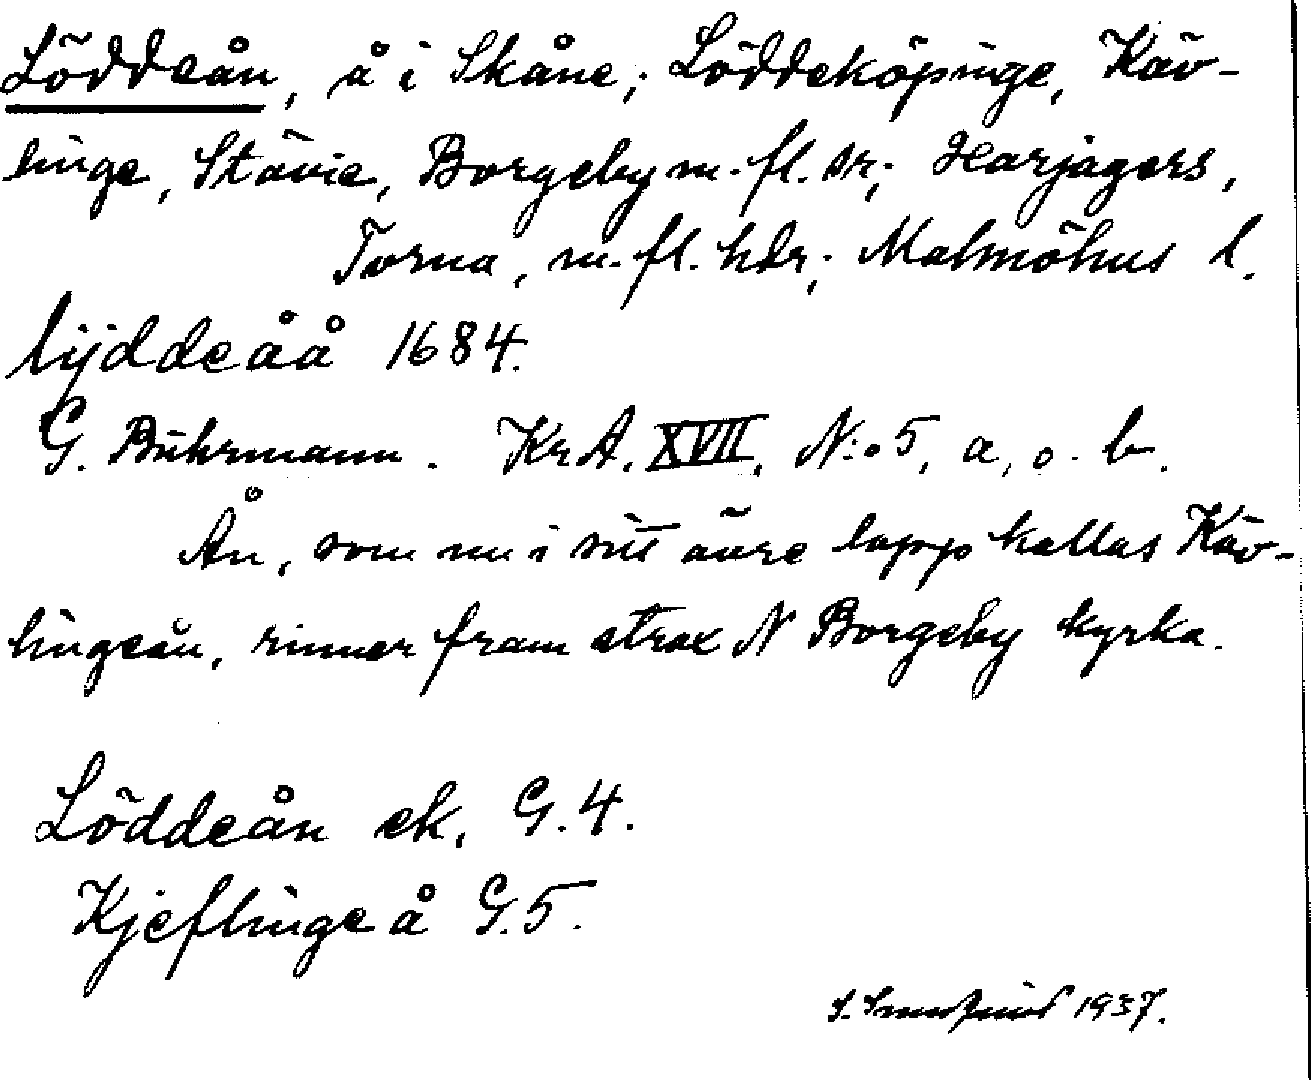 Löddeån, å i Skåne; Löddeköpinge, Käv-
linge, Stävie, Borgeby m. fl. sr; Harjagers,
Torna, m. fl. hdr; Malmöhus l.
lijddeåå 1684.
G. Buhrmann. KrA. XVII, N:o 5, a, o. b.
Ån, som nu i sitt övre lopp kallas Käv-
lingeån, rinner fram strax N Borgeby kyrka.
Löddeån ek. G.4.
Kjeflinge å G.5.
1937.